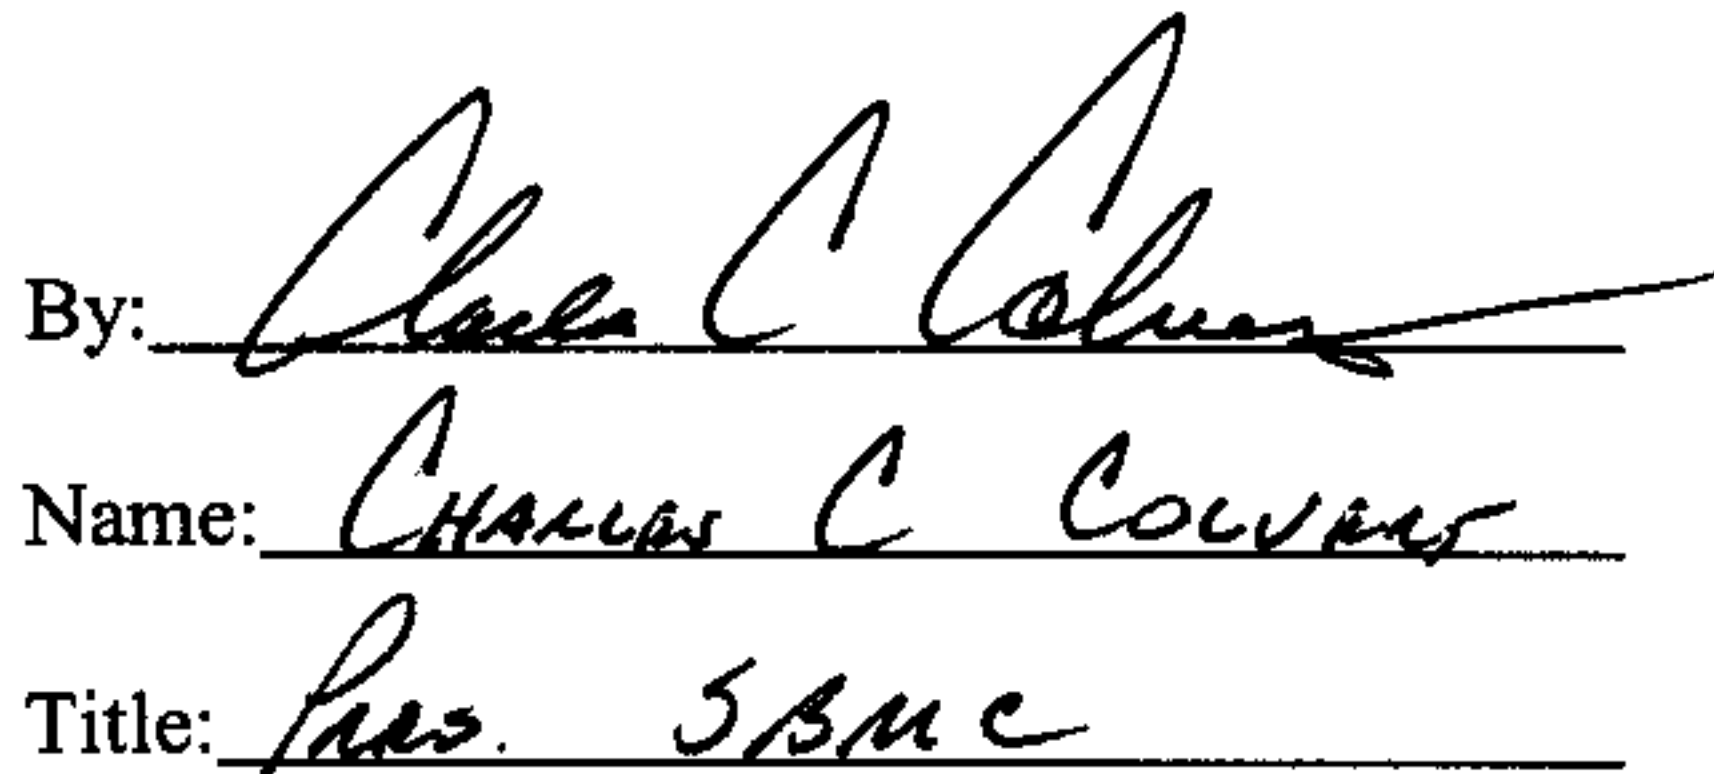 By: Charles C Colver
Name: CHARLES C COLVERT
Title: Pres. SBMC